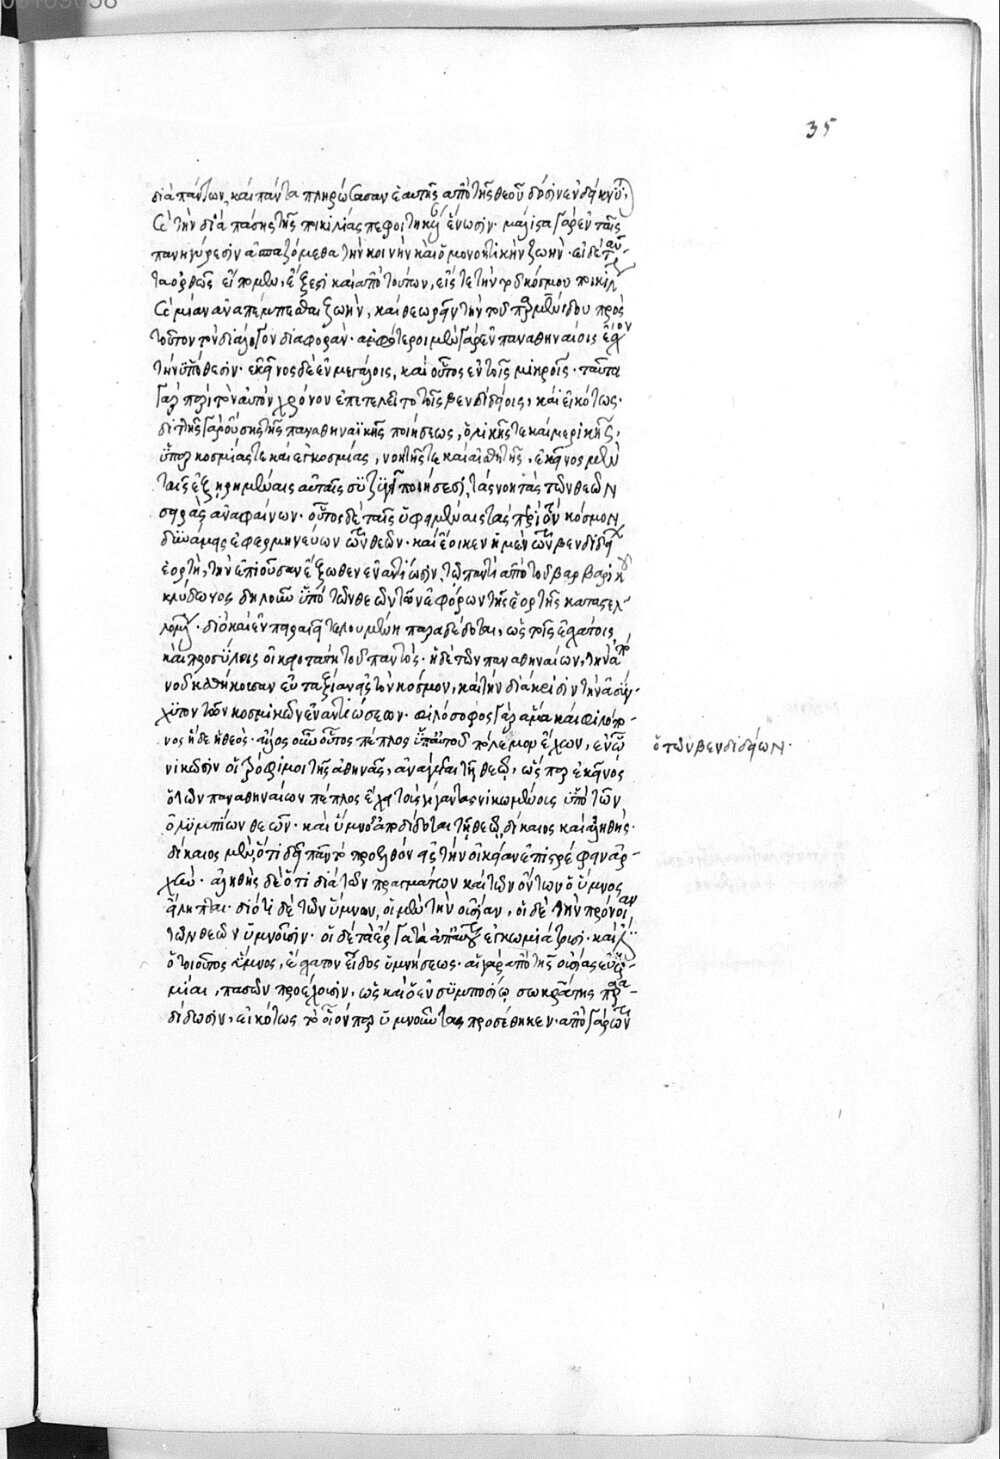 35
διὰ πάντων, καὶ πάντα πληρώσασαν ἑαυτῆς ἀπὸ τῆς θεοῦ δόσιν ἐνδείκνυ-
σθε τὴν διὰ πάσης τῆς ποικιλίας πεφοιτηκυῖαν ἕνωσιν. μάλιστα γὰρ ἐν ταῖς
πανηγύρεσιν ἀσπαζόμεθα τὴν κοινὴν καὶ ὁμονοητικὴν ζωήν. εἰ δὲ ταῦ-
τα ὀρθῶς εἴπομεν, ἔξεστι καὶ ἀπὸ τούτων, εἴς τε τὴν τοῦ κόσμου ποικίλην
μίαν ἀναπέμπεσθαι ζωὴν, καὶ θεωρεῖν τὴν τοῦ παρμενίδου πρὸς
τοῦτον τὸν διάλογον διαφοράν. ἀμφότεροι μὲν γὰρ ἐν παναθηναίοις ἔχουσι
τὴν ὑπόθεσιν. ἐκεῖνος δὲ ἐν μεγάλοις, καὶ οὗτος ἐν τοῖς μικροῖς. ταῦτα
γὰρ περὶ τὸν αὐτὸν χρόνον ἐπετελεῖτο τοῖς βενδιδείοις, καὶ εἰκότως.
διττῆς γὰρ οὔσης τῆς παναθηναϊκῆς ποιήσεως, ὁλικῆς τε καὶ μερικῆς,
ὑπερκοσμίας τε καὶ ἐγκοσμίας, νοητῆς τε καὶ αἰσθητῆς, ἐκεῖνος μὲν
ταῖς ἐξῃρημέναις αὐτῆς συζῇ ποιήσεσι, τὰς νοητὰς τῶν θεῶν
σειρὰς ἀναφαίνων. οὗτος δὲ ταῖς ὑφειμέναις τὰς περὶ τὸν κόσμον
δυνάμεις ἀφερμηνεύων τῶν θεῶν. καὶ ἔοικεν ἡ μὲν τῶν βενδιδείων
ἑορτὴ, τὴν ἐπιοῦσαν ἔξωθεν ἐναντίωσιν, τῷ παντὶ ἀπὸ τοῦ βαρβαρικοῦ
κλύδωνος δηλοῦν ὑπὸ τῶν θεῶν τῶν ἐφόρων τῆς ἑορτῆς καταστελ-
λομένην. διὸ καὶ ἐν πειραιεῖ τελουμένη παραδέδοται, ὡς τοῖς ἐσχάτοις,
καὶ προσύλοις οἰκειοτάτη τοῦ παντός. ἡ δὲ τῶν παναθηναίων, τὴν ἀπὸ
νοῦ καθήκουσαν εὐταξίαν εἰς τὸν κόσμον, καὶ τὴν διάκρισιν τὴν ἀσύγ-
χυτον τῶν κοσμικῶν ἐναντιώσεων. φιλόσοφος γὰρ ἅμα καὶ φιλοπό-
νος ἥδε ἡ θεός. ἄλλος οὖν οὗτος πέπλος ὑπ' αὐτοῦ πόλεμον ἔχων, ἐν ᾧ
ὁ τῶν βενδιδείων.
νικῶσιν οἱ τρόφιμοι τῆς ἀθηνᾶς, ἀνάγεται τῇ θεῷ, ὥσπερ ἐκεῖνος
ὁ τῶν παναθηναίων πέπλος εἶχε τοὺς γίγαντας νικωμένους ὑπὸ τῶν
ὀλυμπίων θεῶν. καὶ ὕμνος ἀποδίδοται τῇ θεῷ, δίκαιος καὶ ἀληθής.
δίκαιος μὲν, ὅτι δεῖ πᾶν τὸ προελθὸν εἰς τὴν οἰκείαν ἐπιστρέφειν ἀρ-
χήν. ἀληθὴς δὲ ὅτι διὰ τῶν πραγμάτων καὶ τῶν ὄντων ὁ ὕμνος
εἴληπται. διότι δὲ τῶν ὕμνων, οἱ μὲν τὴν οὐσίαν, οἱ δὲ τὴν πρόνοιαν
τῶν θεῶν ὑμνοῦσιν. οἱ δὲ τὰ ἔργα τὰ ἀπ' αὐτῶν ἐγκωμιάζουσι. καὶ
ὁ τοιοῦτος ὕμνος, ἔσχατον εἶδος ὑμνήσεως. αἱ γὰρ ἀπὸ τῆς οὐσίας εὐφη-
μίαι, πασῶν προέχουσιν, ὡς καὶ ὁ ἐν συμποσίῳ σωκράτης παρα-
δίδωσιν, εἰκότως τὸ οἷόνπερ ὑμνοῦντας προσέθηκεν. ἀπὸ γὰρ τῶν